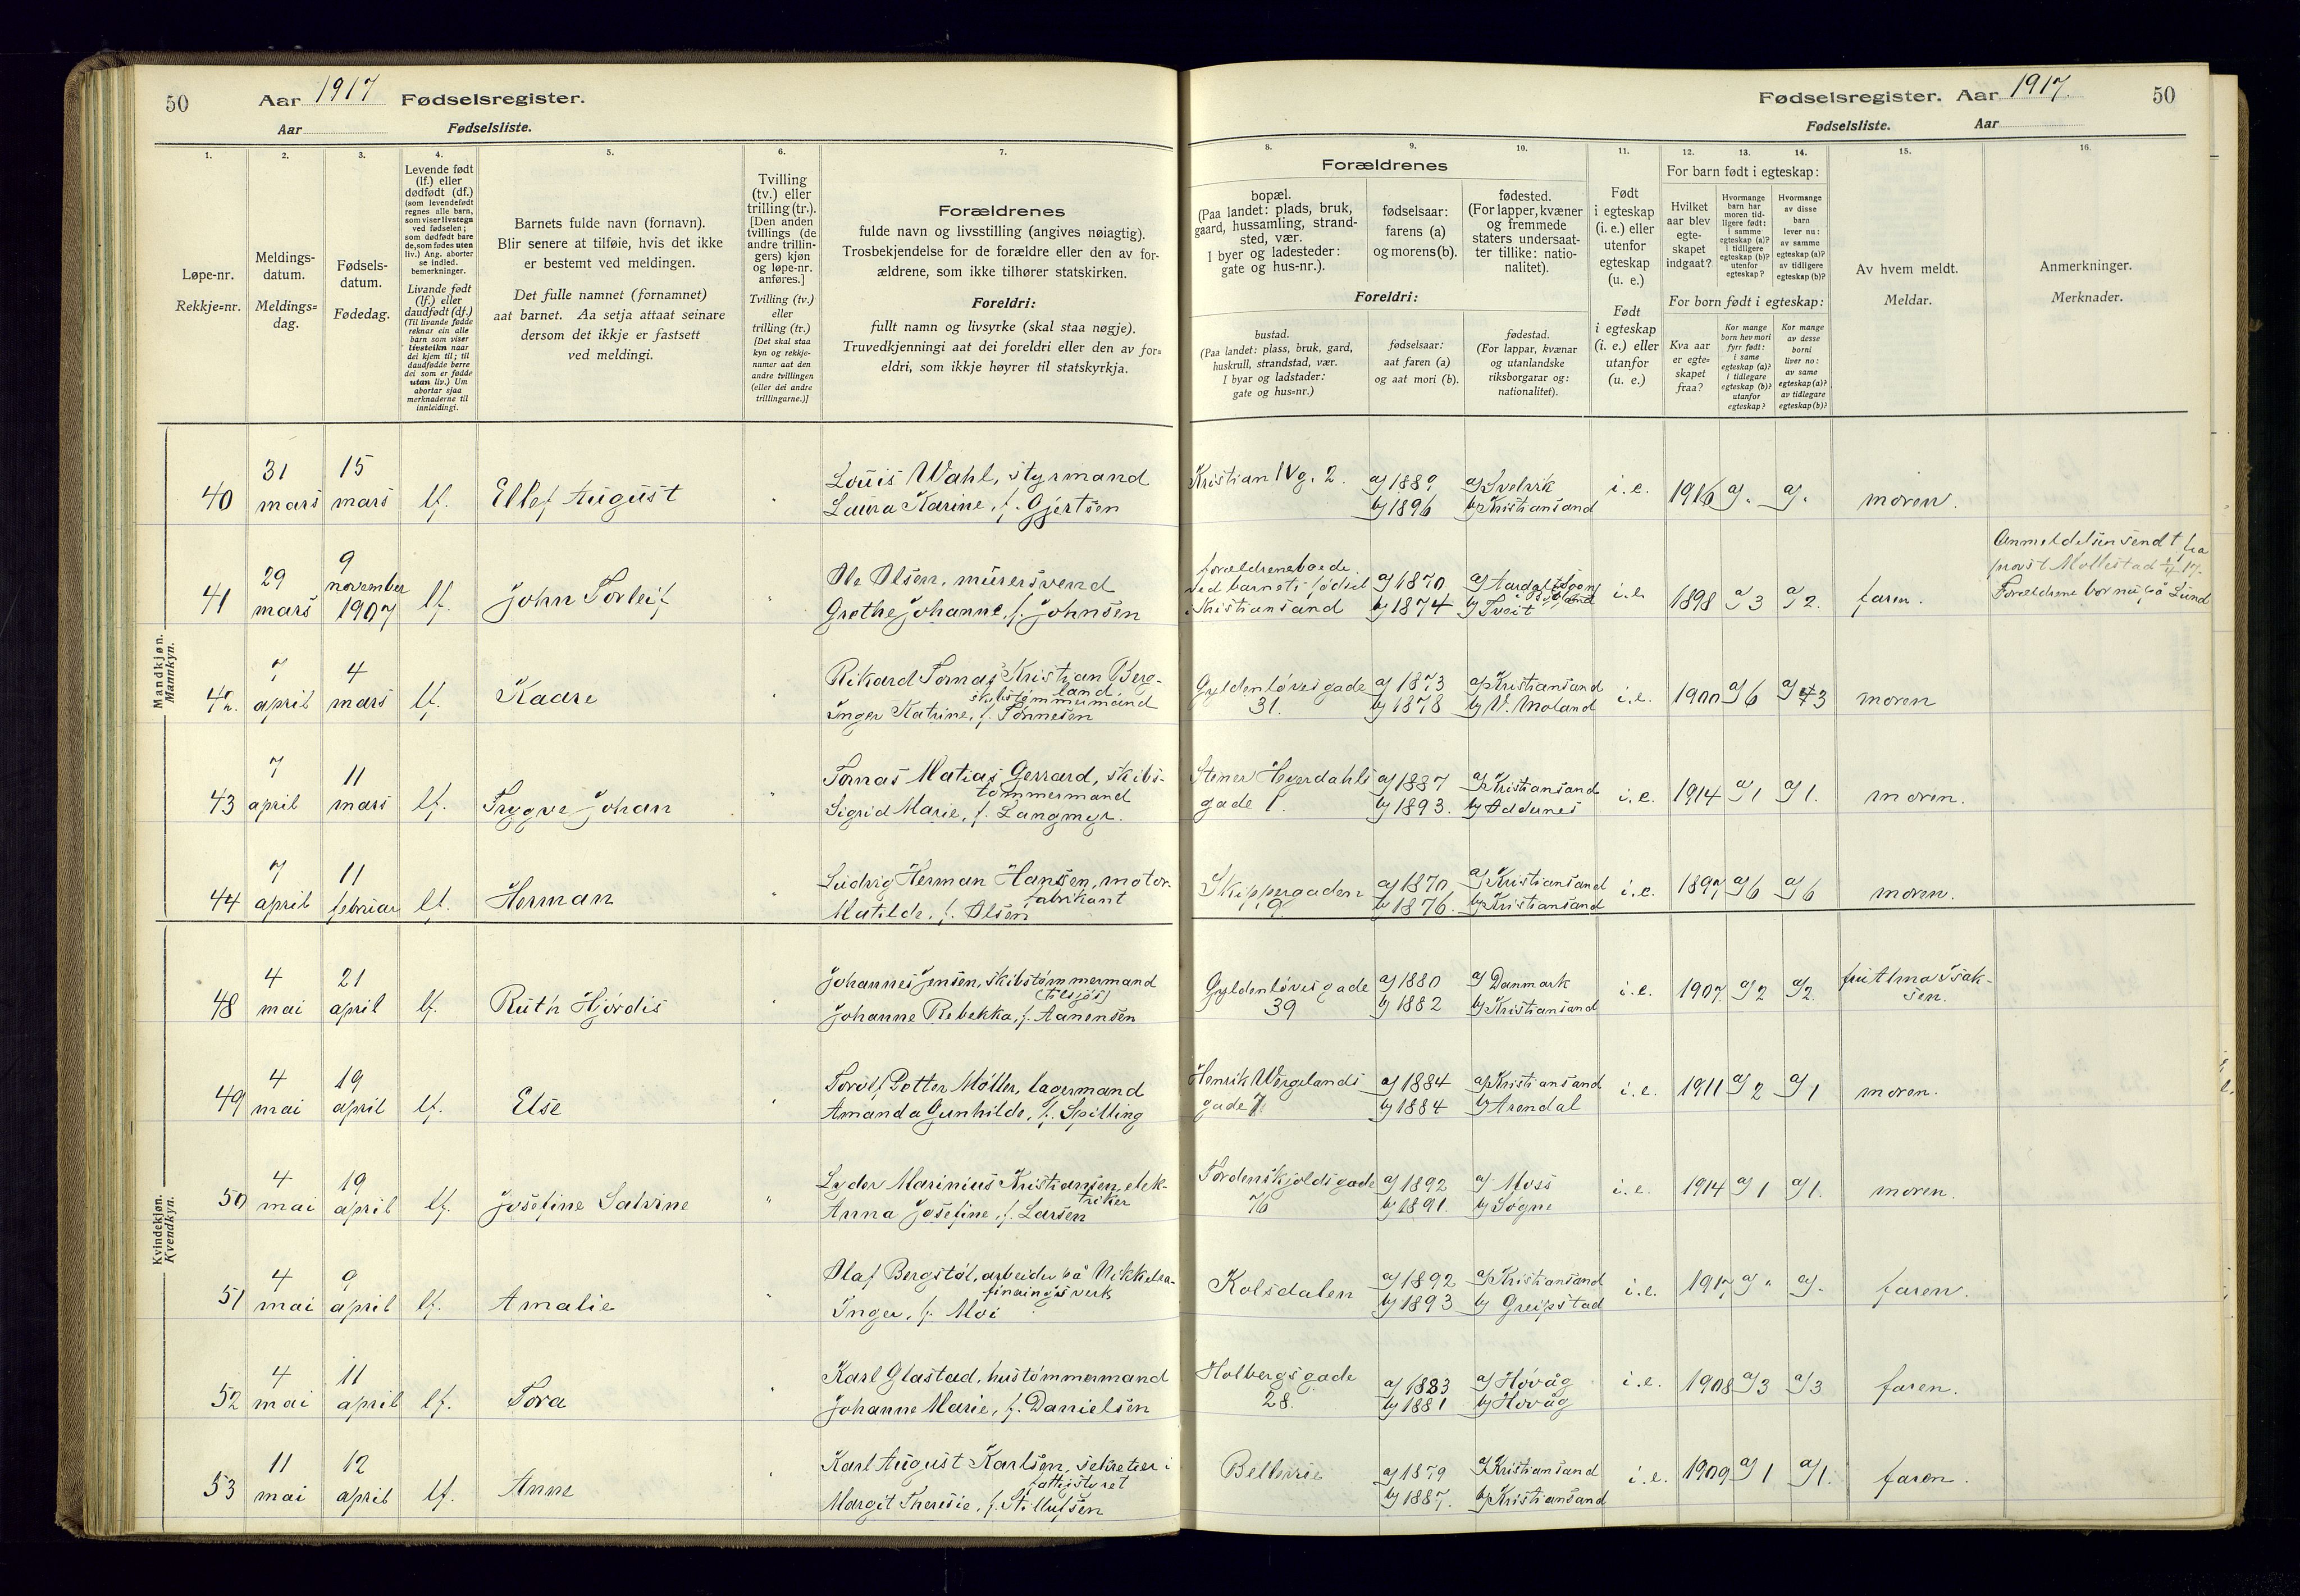 50
Aar 1917 Fødselsregister.
Aar Fødselsliste.
1.
2.
3.
4.
5.
6.
7.
Løpe-nr.
Rekkje=nr.
Meldings-
datum.
Meldings=
dag.
Fødsels-
datum.
Fødedag.
Levende født
(lf.) eller
dødfødt (df.)
(som levendefødt
regnes alle barn,
som viser livstegn
ved fødselen;
som dødfødt bare
de, som fødes uten
liv.) Ang. aborter
se indled.
bemerkninger.
Livande født
(lf.) eller
daudfødt (df.)
(Til livande fødde
reknar ein alle
barn som viser
livsteikn naar
dei kjem til; til
daudfødde berre
dei som er fødde
utan liv.) Um
abortar sjaa
merknaderne til
innleidingi.
Barnets fulde navn (fornavn).
Blir senere at tilføie, hvis det ikke
er bestemt ved meldingen.
Det fulle namnet (fornamnet)
aat barnet. Aa setja attaat seinare
dersom det ikkje er fastsett
ved meldingi.
Tvilling
(tv.) eller
trilling (tr.).
[Den anden
tvillings (de
andre trillin-
gers) kjøn
og løpe-nr.
anføres.]
Tvilling (tv.)
eller
trilling (tr.)
[Det skal staa
kyn og rekkje-
numer aat den
andre tvillingen
(eller dei andre
trillingarne.)]
Forældrenes
fulde navn og livsstilling (angives nøiagtig).
Trosbekjendelse for de forældre eller den av for-
ældrene, som ikke tilhører statskirken.
Foreldri:
fullt namn og livsyrke (skal staa nøgje).
Truvedkjenningi aat dei foreldri eller den av for=
eldri, som ikkje høyrer til statskyrkja.
Fødselsregister. Aar 1917.
50
Fødselsliste. Aar
8.
9.
10.
11.
12.
13.
14.
15.
16.
Forældrenes
bopæl.
(Paa landet: plads, bruk,
gaard, hussamling, strand-
sted, vær.
I byer og ladesteder:
gate og hus-nr.).
fødselsaar:
farens (a)
og morens (b).
fødested.
(For lapper, kvæner
og fremmede
staters undersaat-
ter tillike: natio-
nalitet).
Foreldri:
bustad.
(Paa landet: plass, bruk, gard,
huskrull, strandstad, vær.
I byar og ladstader:
gate og hus=nr.)
fødselsaar:
aat faren (a)
og aat mori (b).
fødestad.
(For lappar, kvænar
og utanlandske
riksborgarar og:
nationalitet).
Født
i egteskap
(i. e.) eller
utenfor
egteskap
(u. e.)
Født
i egteskap
(i. e.) eller
utanfor
(u. e.)
For barn født i egteskap:
Hvilket
aar blev
egte-
skapet
indgaat?
Hvormange
barn har
moren tid-
ligere født:
i samme
egteskap (a)?
i tidligere
egteskap (b)?
utenfor
egteskap?
Hvormange
av disse
barn
lever nu:
av samme
egteskap (a)?
av tidligere
egteskap (b)?
For born født i egteskap:
Kva aar
er egte-
skapet
fraa?
Kor mange
born hev mori
fyrr født:
i same
egteskap (a)?
i tidlegare
egteskap (b)?
utanfor
egteskap?
Kor mange
av desse
borni
liver no:
av same
egteskap (a)?
av tidlegare
egteskap (b)?
Av hvem meldt.
Meldar.
Anmerkninger.
Merknader.
Mandkjøn.
Mannkyn.
40 31 mars 15 mars lf. Ellef August " Louis Wahl, styrmand
Laura Karine, f. Gjertsen
Kristian IVg. 2. a) 1889 b) 1896 a) Svelvik b) Kristiansand i.e. 1916 a) . a) . moren.
41 29 mars 9 november 1907 lf. John Torleif " Ole Olsen, murersvend
Grethe Johanne, f. Johnsen
forældrene boede
ved barnets fødsel
i Kristiansand a) 1870 b) 1874 b) Tveit i.e. 1898 a) 3 a) 2. faren.
Anmeldelsen sendt fra
provst Mollestad
Forældrene bor nu på Lund
42. 7 april 4 mars lf. Kaare " Rikard Tomas Kristian Berg-
land, skibstømmermand
Inger Katrine, f. Tønnesen
Gyldenløvesgade
31. a) 1873 b) 1878 a) Kristiansand b) V. Moland i.e. 1900 a) 6 a) 3 moren
43 7 april 11 mars lf. Trygve Johan " Tomas Matias Gerrard, skibs-
tømmermand
Sigrid Marie, f. Langmyr.
Stener Heyerdahls
gade 1. a) 1887 b) 1893. a) Kristiansand b) Oddernes i.e. 1914 a) 1 a) 1. moren.
44 7 april 11 februar lf. Herman " Ludvig Herman Hansen, motor-
fabrikant
Matilde, f. Olsen
Skippergaden
9 a) 1870 b) 1876. a) Kristiansand b) Kristiansand i.e. 1897 a) 6 a) 6 moren.
Kvindekjøn.
Kvendkyn.
48 4 mai 21 april lf. Ruth Hjørdis " Johannes Jensen, skibstømmermand
(tilsjøs)
Johanne Rebekka, f. Aanensen
Gyldenløvesgade
39 a) 1880 b) 1882 a) Danmark b) Kristiansand i.e. 1907. a) 2 a) 2. fru Alma Isak-
sen.
49 4 mai 19 april lf. Else " Torolf Potter Møller, lagermand
Amanda Gunhilde, f. Spilling
Henrik Wergelands
gade 7 a) 1884 b) 1884 a) Kristiansand b) Arendal i.e. 1911 a) 2 a) 1 moren.
50 4 mai 19 april lf. Josefine Salvine " Lyder Marinius Kristiansen, elek-
triker
Anna Josefine, f. Larsen
Tordenskjoldsgade
76 a) 1892 b) 1891. a) Moss b) Søgne i.e. 1914 a) 1 a) 1. moren.
51 4 mai 9 april lf. Amalie " Olaf Bergstøl, arbeider på Nikkelra-
fineringsverk
Inger, f. Moi
Kolsdalen a) 1892 b) 1893 a) Kristiansand b) Greipstad i.e. 1917 a) " a) . faren.
52 4 mai 11 april lf. Tora " Karl Glastad, hustømmermand
Johanne Marie, f. Danielsen
Holbergsgade
28. a) 1883 b) 1881 a) Høvåg b) Høvåg i.e. 1908 a) 3 a) 3 faren.
53 11 mai 12 april lf. Anne " Karl August Karlsen, sekretær i
fattigstyret
Margit Theresie, f. Stillufsen
Bellevue a) 1879 b) 1887. a) Kristiansand b) Kristiansand i.e. 1909 a) 1 a) 1. faren.